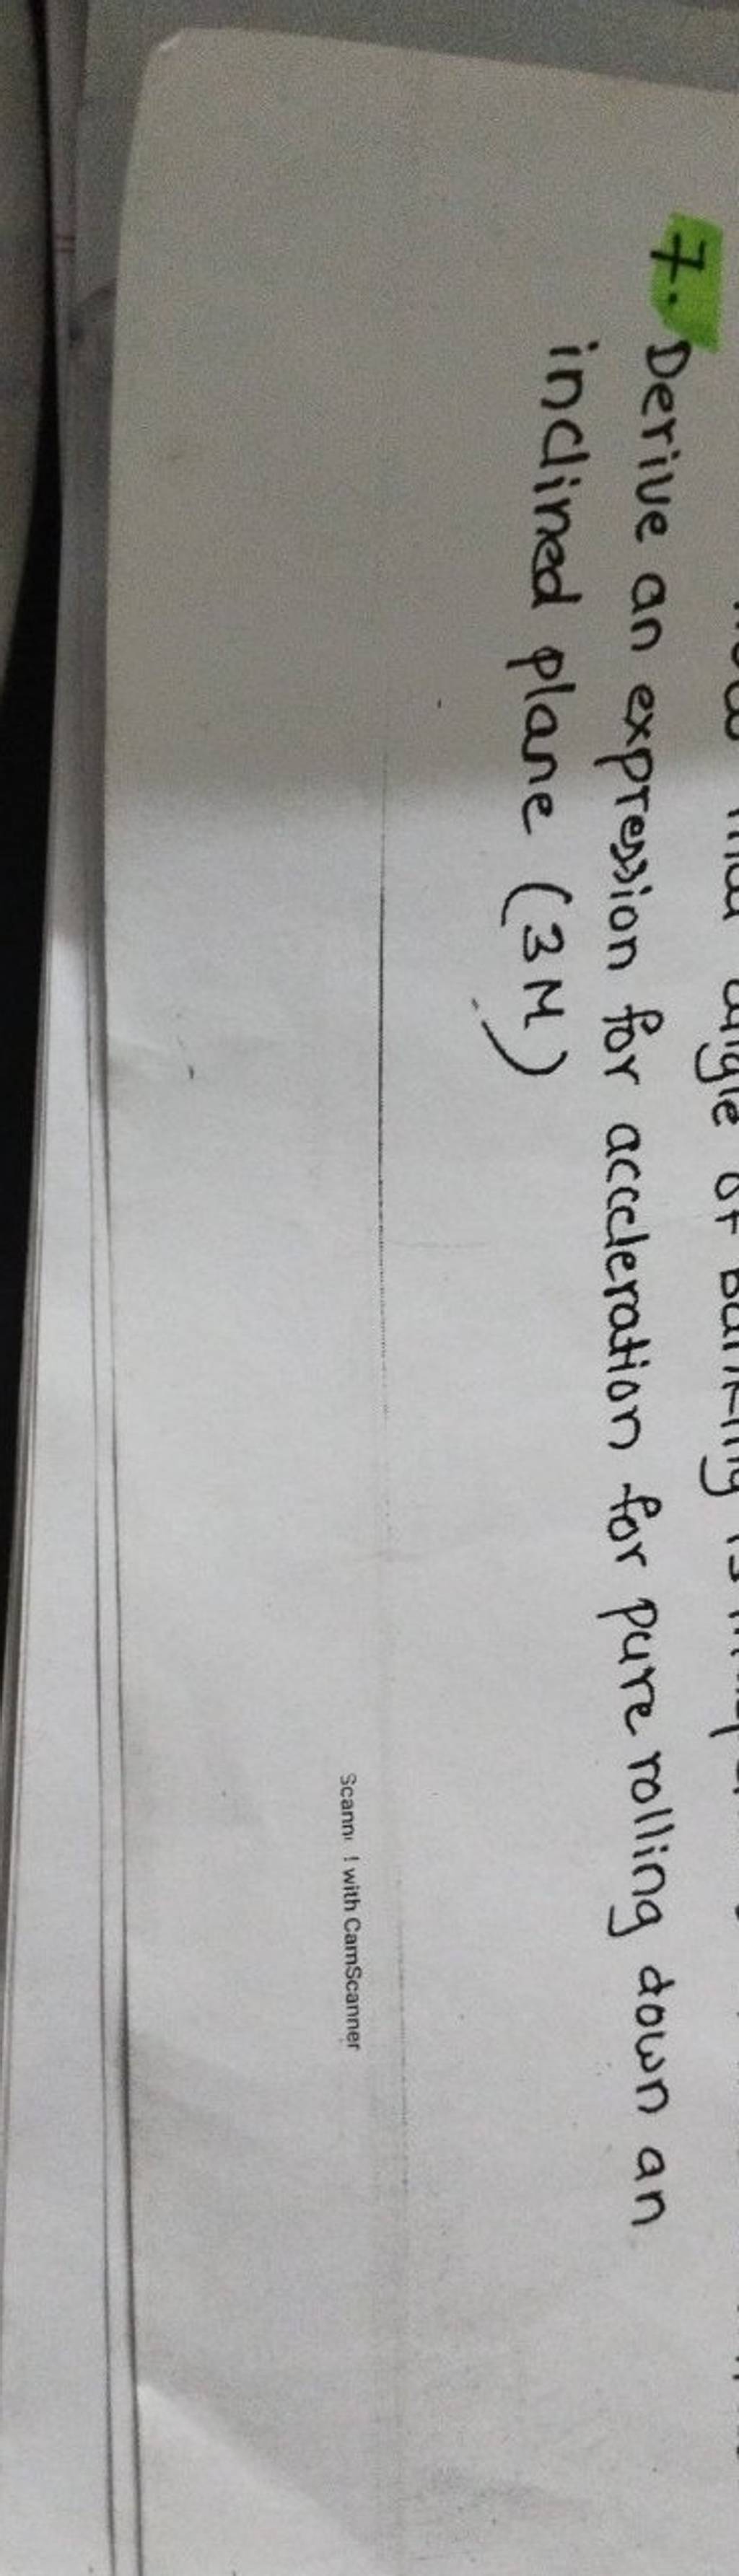 angle of banking is
7. Derive an expression for accleration for pure rolling down an
inclined plane (3M)
with CamScanner